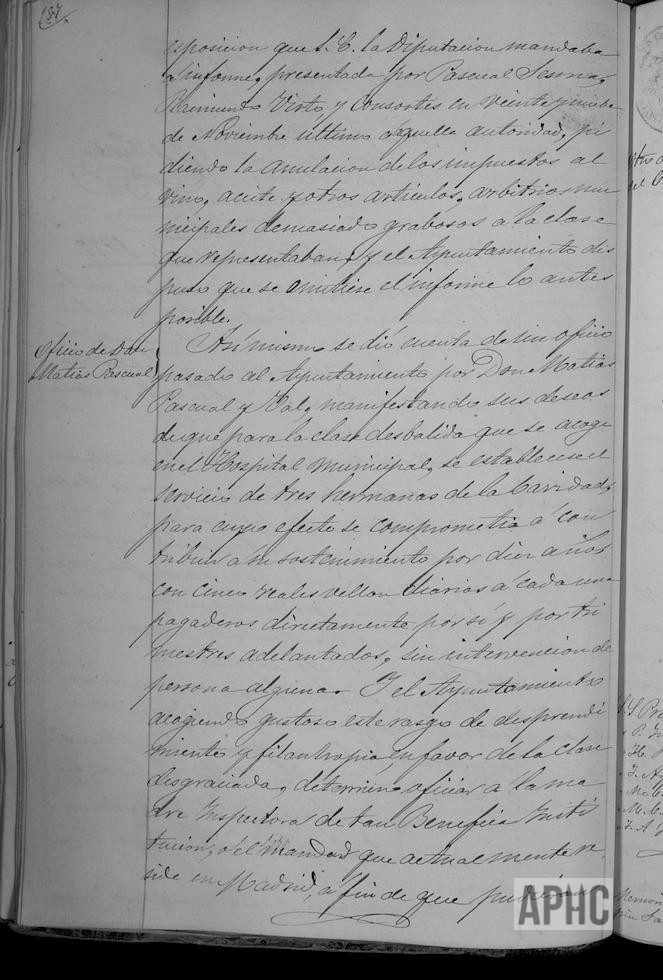 187
esposicion que S. E. la Diputacion mandaba
a informe, presentada por Pascual Sesma,
Raimundo Virto y Consortes en veinte y nueve
de Noviembre ultimo a aquella autoridad, pi
diendo la anulacion de los impuestos al
vino, aceite y otros articulos, arbitrios mu
nicipales demasiado grabosos a la clase
que representaban, y el Ayuntamiento dis
puso que se emitiese el informe lo antes
posible.
Oficio de Don
Matias Pascual
Asi mismo se dió cuenta de un oficio
pasado al Ayuntamiento por Don Matias
Pascual y manifestando sus deseos
de que para la clase desbalida que se acoge
en el Hospital Municipal, se estableciese el
servicio de tres hermanas de la Caridad,
para cuyo efecto se comprometia á con
tribuir a su sostenimiento por diez años
con cinco reales vellon diarios á cada una
pagaderos directamente por sí y por tri
mestres adelantados, sin intervencion de
persona alguna. Y el Ayuntamiento
acogiendo gustoso este rasgo de desprendi
miento y filantropia, en favor de la clase
desgraciada, determinó oficiar a la ma
dre Inspectora de tan Benefica Insti
tucion, ó el que actualmente re
side en Madrid, a fin de que
APHC